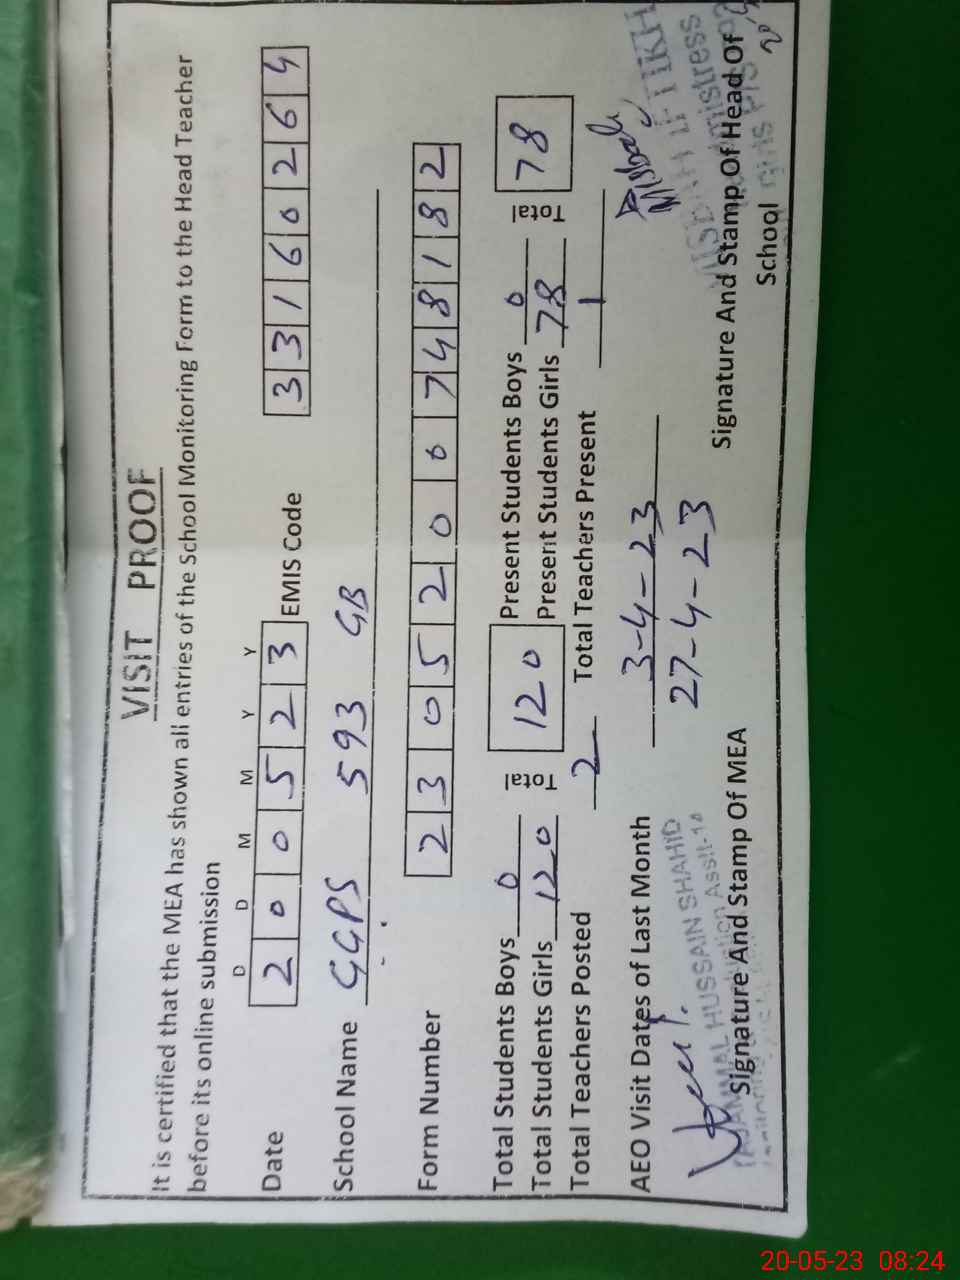 VISIT PROOF
It is certified that the MEA has shown all entries of the School Monitoring Form to the Head Teacher
before its online submission
D D M M Y Y
Date 2 0 0 5 2 3 EMIS Code 3 3 1 6 0 2 6 4
School Name GGPS 593 GB
Form Number 2 3 0 5 2 0 0 7 4 8 1 8 2
Total Students Boys 0 Total 120 Present Students Boys 0 Total 78
Total Students Girls 120 Present Students Girls 78
Total Teachers Posted 2 Total Teachers Present 1
AEO Visit Dates of Last Month 3-4-23
27-4-23
Misbah
TAJAMMAL HUSSAIN SHAHID
MISBAH IFTIKH
Signature And Stamp Of MEA
Signature And Stamp Of Head Of
School
20-05-23 08:24